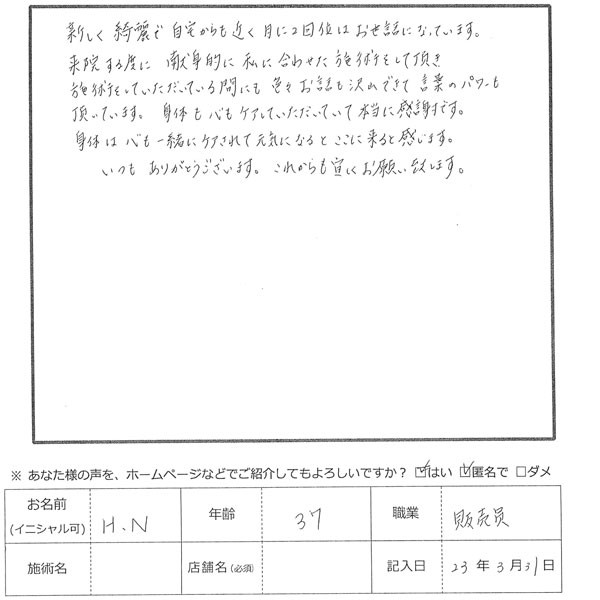 新しく 綺麗で 自宅からも近く 月に2回位は お世話になっています。
来院する度に 献身的に 私に合わせた 施術をして頂き
施術をしていただいている間にも 色々お話も沢山できて 言葉のパワーも
頂いています。 身体も心もケアしていただいていて本当に感謝です。
身体は心も一緒にケアされて元気になると ここに来ると感じます。
いつも ありがとうございます。 これからも宜しくお願い致します。
※ あなた様の声を、ホームページなどでご紹介してもよろしいですか？ ☑はい ☑匿名で □ダメ
お名前 (イニシャル可) H.N 年齢 37 職業 販売員
施術名 店舗名(必須) 記入日 23年 3月 31日